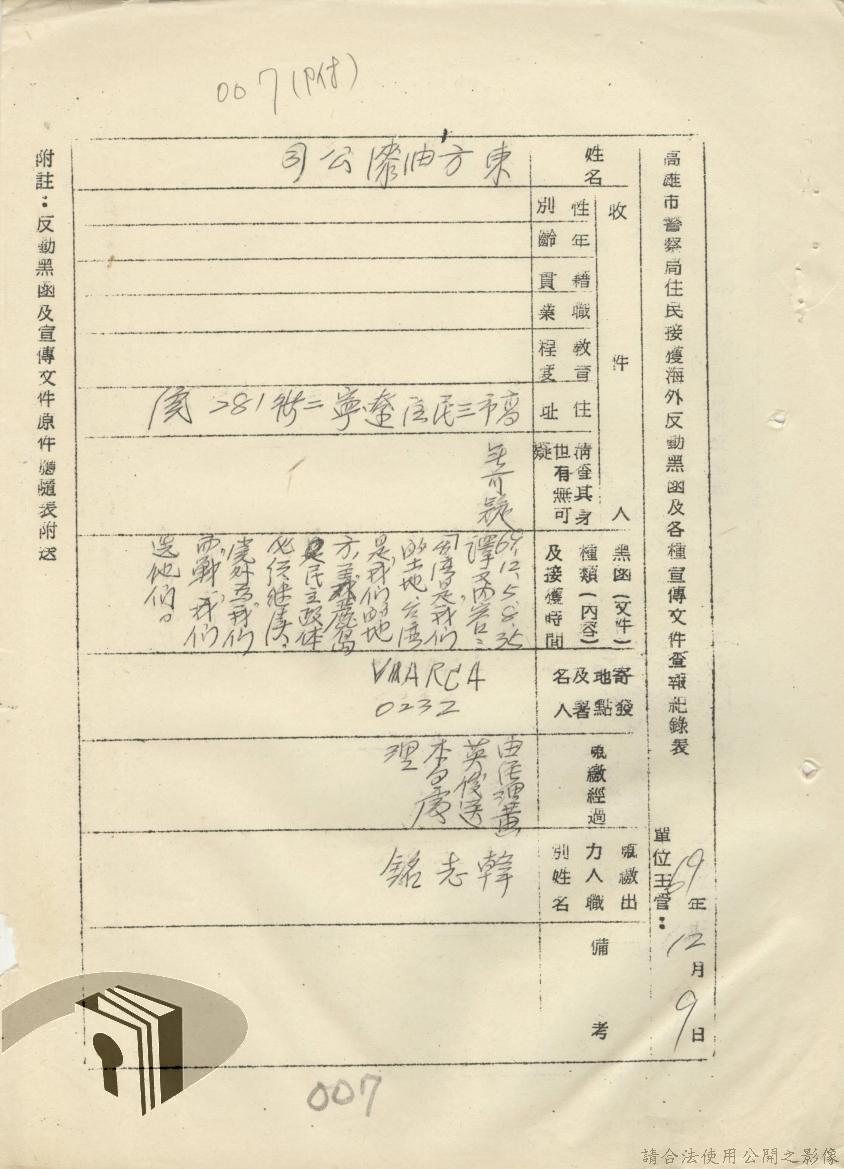 007(附)
高雄市警察局住民接獲海外反動黑函及各種宣傳文件查報紀錄表
單位主管：
69年12月9日
收件人
姓名
東方油漆公司
性別
年齡
籍貫
職業
教育程度
住址
高市三民區遼寧二街281號
清查其身世有無可疑
無可疑
黑函(文件)種類(內容)及接獲時間
69.12.5.8.35
譯文內容：
台灣是我們
的土地，台灣
是我們的地
方，
是民主政体
必須继續，
党外為我們
而戰，我們
選他們。
寄發地點及署名人
VMARCA
0232
呈繳經過
英俊送
李
理
呈繳出力人職別姓名
韓志銘
備考
附註：反動黑函及宣傳文件原件應隨表附送
007
請合法使用公開之影像